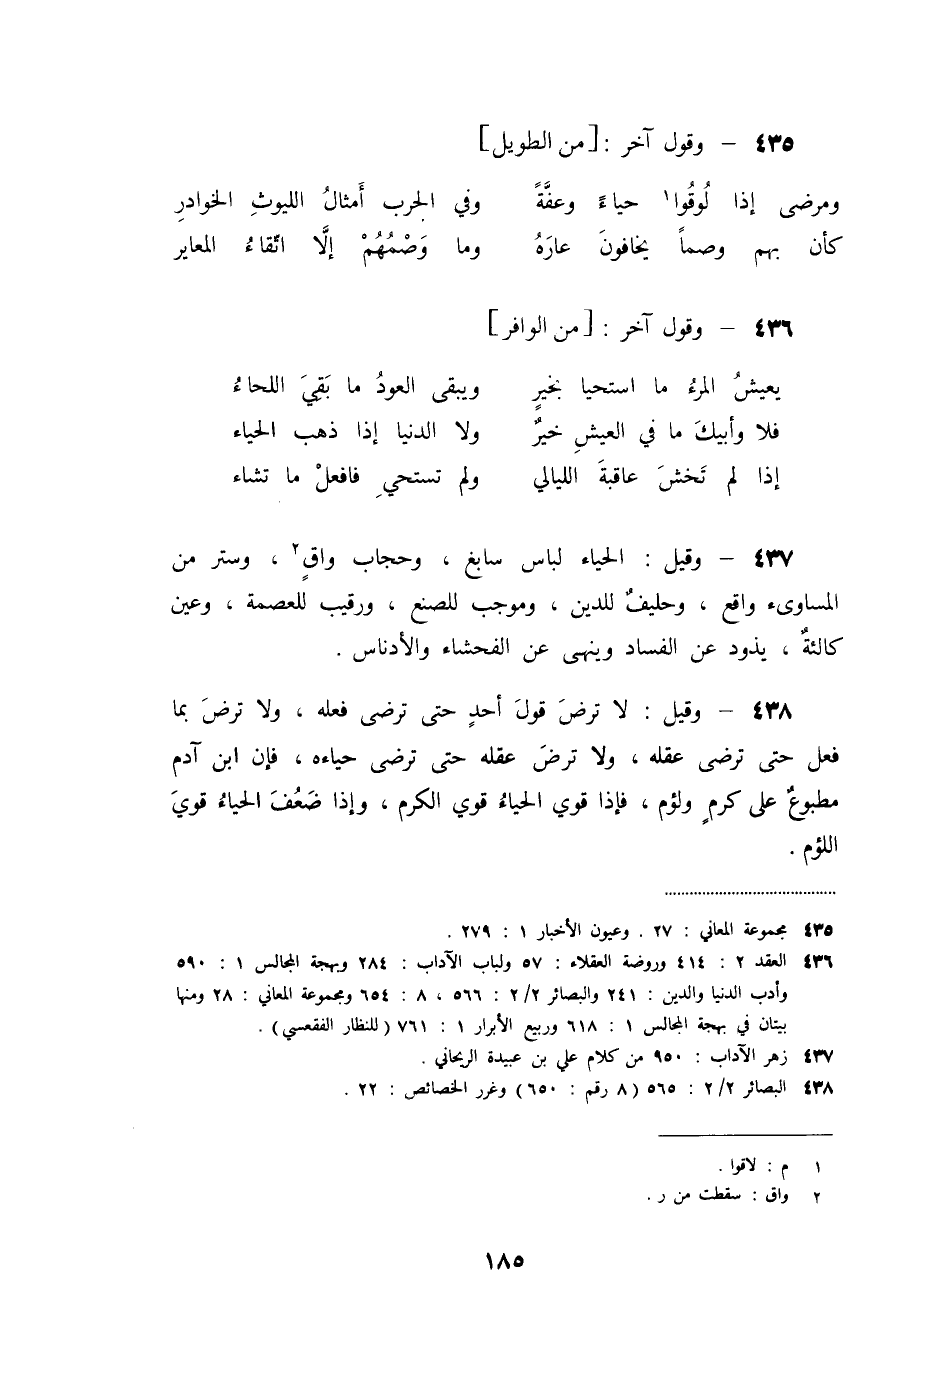 ٤٣٥ – وقول آخر : [من الطويل]
ومرضى إذا لُوقُوا١ حياءً وعفَّةً وفي الحرب أَمثالُ الليوثِ الخوادرِ
كأن بهم وصماً يخافونَ عارَهُ وما وَصْمُهُمْ إلَّا اتّقاءُ المعاير
٤٣٦ – وقول آخر : [من الوافر]
يعيشُ المرءُ ما استحيا بخيرٍ ويبقى العودُ ما بَقِيَ اللحاءُ
فلا وأبيكَ ما في العيشِ خيرٌ ولا الدنيا إذا ذهب الحياء
إذا لم تَخشَ عاقبةَ الليالي ولم تستحيِ فافعلْ ما تشاء
٤٣٧ – وقيل : الحياء لباس سابغ ، وحجاب واقٍ٢ ، وستر من
المساوىء واقع ، وحليفٌ للدين ، وموجب للصنع ، ورقيب للعصمة ، وعين
كالئةٌ ، يذود عن الفساد وينهى عن الفحشاء والأدناس .
٤٣٨ – وقيل : لا ترضَ قولَ أحدٍ حتى ترضى فعله ، ولا ترضَ بما
فعل حتى ترضى عقله ، ولا ترضَ عقله حتى ترضى حياءه ، فإن ابن آدم
مطبوعٌ على كرمٍ ولؤم ، فإذا قوي الحياءُ قوي الكرم ، وإذا ضَعُفَ الحياءُ قويَ
اللؤم .
٤٣٥ مجموعة المعاني : ٢٧ . وعيون الأخبار ١ : ٢٧٩ .
٤٣٦ العقد ٢ : ٤١٤ وروضة العقلاء : ٥٧ ولباب الآداب : ٢٨٤ وبهجة المجالس ١ : ٥٩٠
وأدب الدنيا والدين : ٢٤١ والبصائر ٢/٢ : ٥٦٦ ، ٨ : ٦٥٤ ومجموعة المعاني : ٢٨ ومنها
بيتان في بهجة المجالس ١ : ٦١٨ وربيع الأبرار ١ : ٧٦١ (للنظار الفقعسي) .
٤٣٧ زهر الآداب : ٩٥٠ من كلام علي بن عبيدة الريحاني .
٤٣٨ البصائر ٢/٢ : ٥٦٥ (٨ رقم : ٦٥٠) وغرر الخصائص : ٢٢ .
١ م : لاقوا .
٢ واق : سقطت من ر .
١٨٥